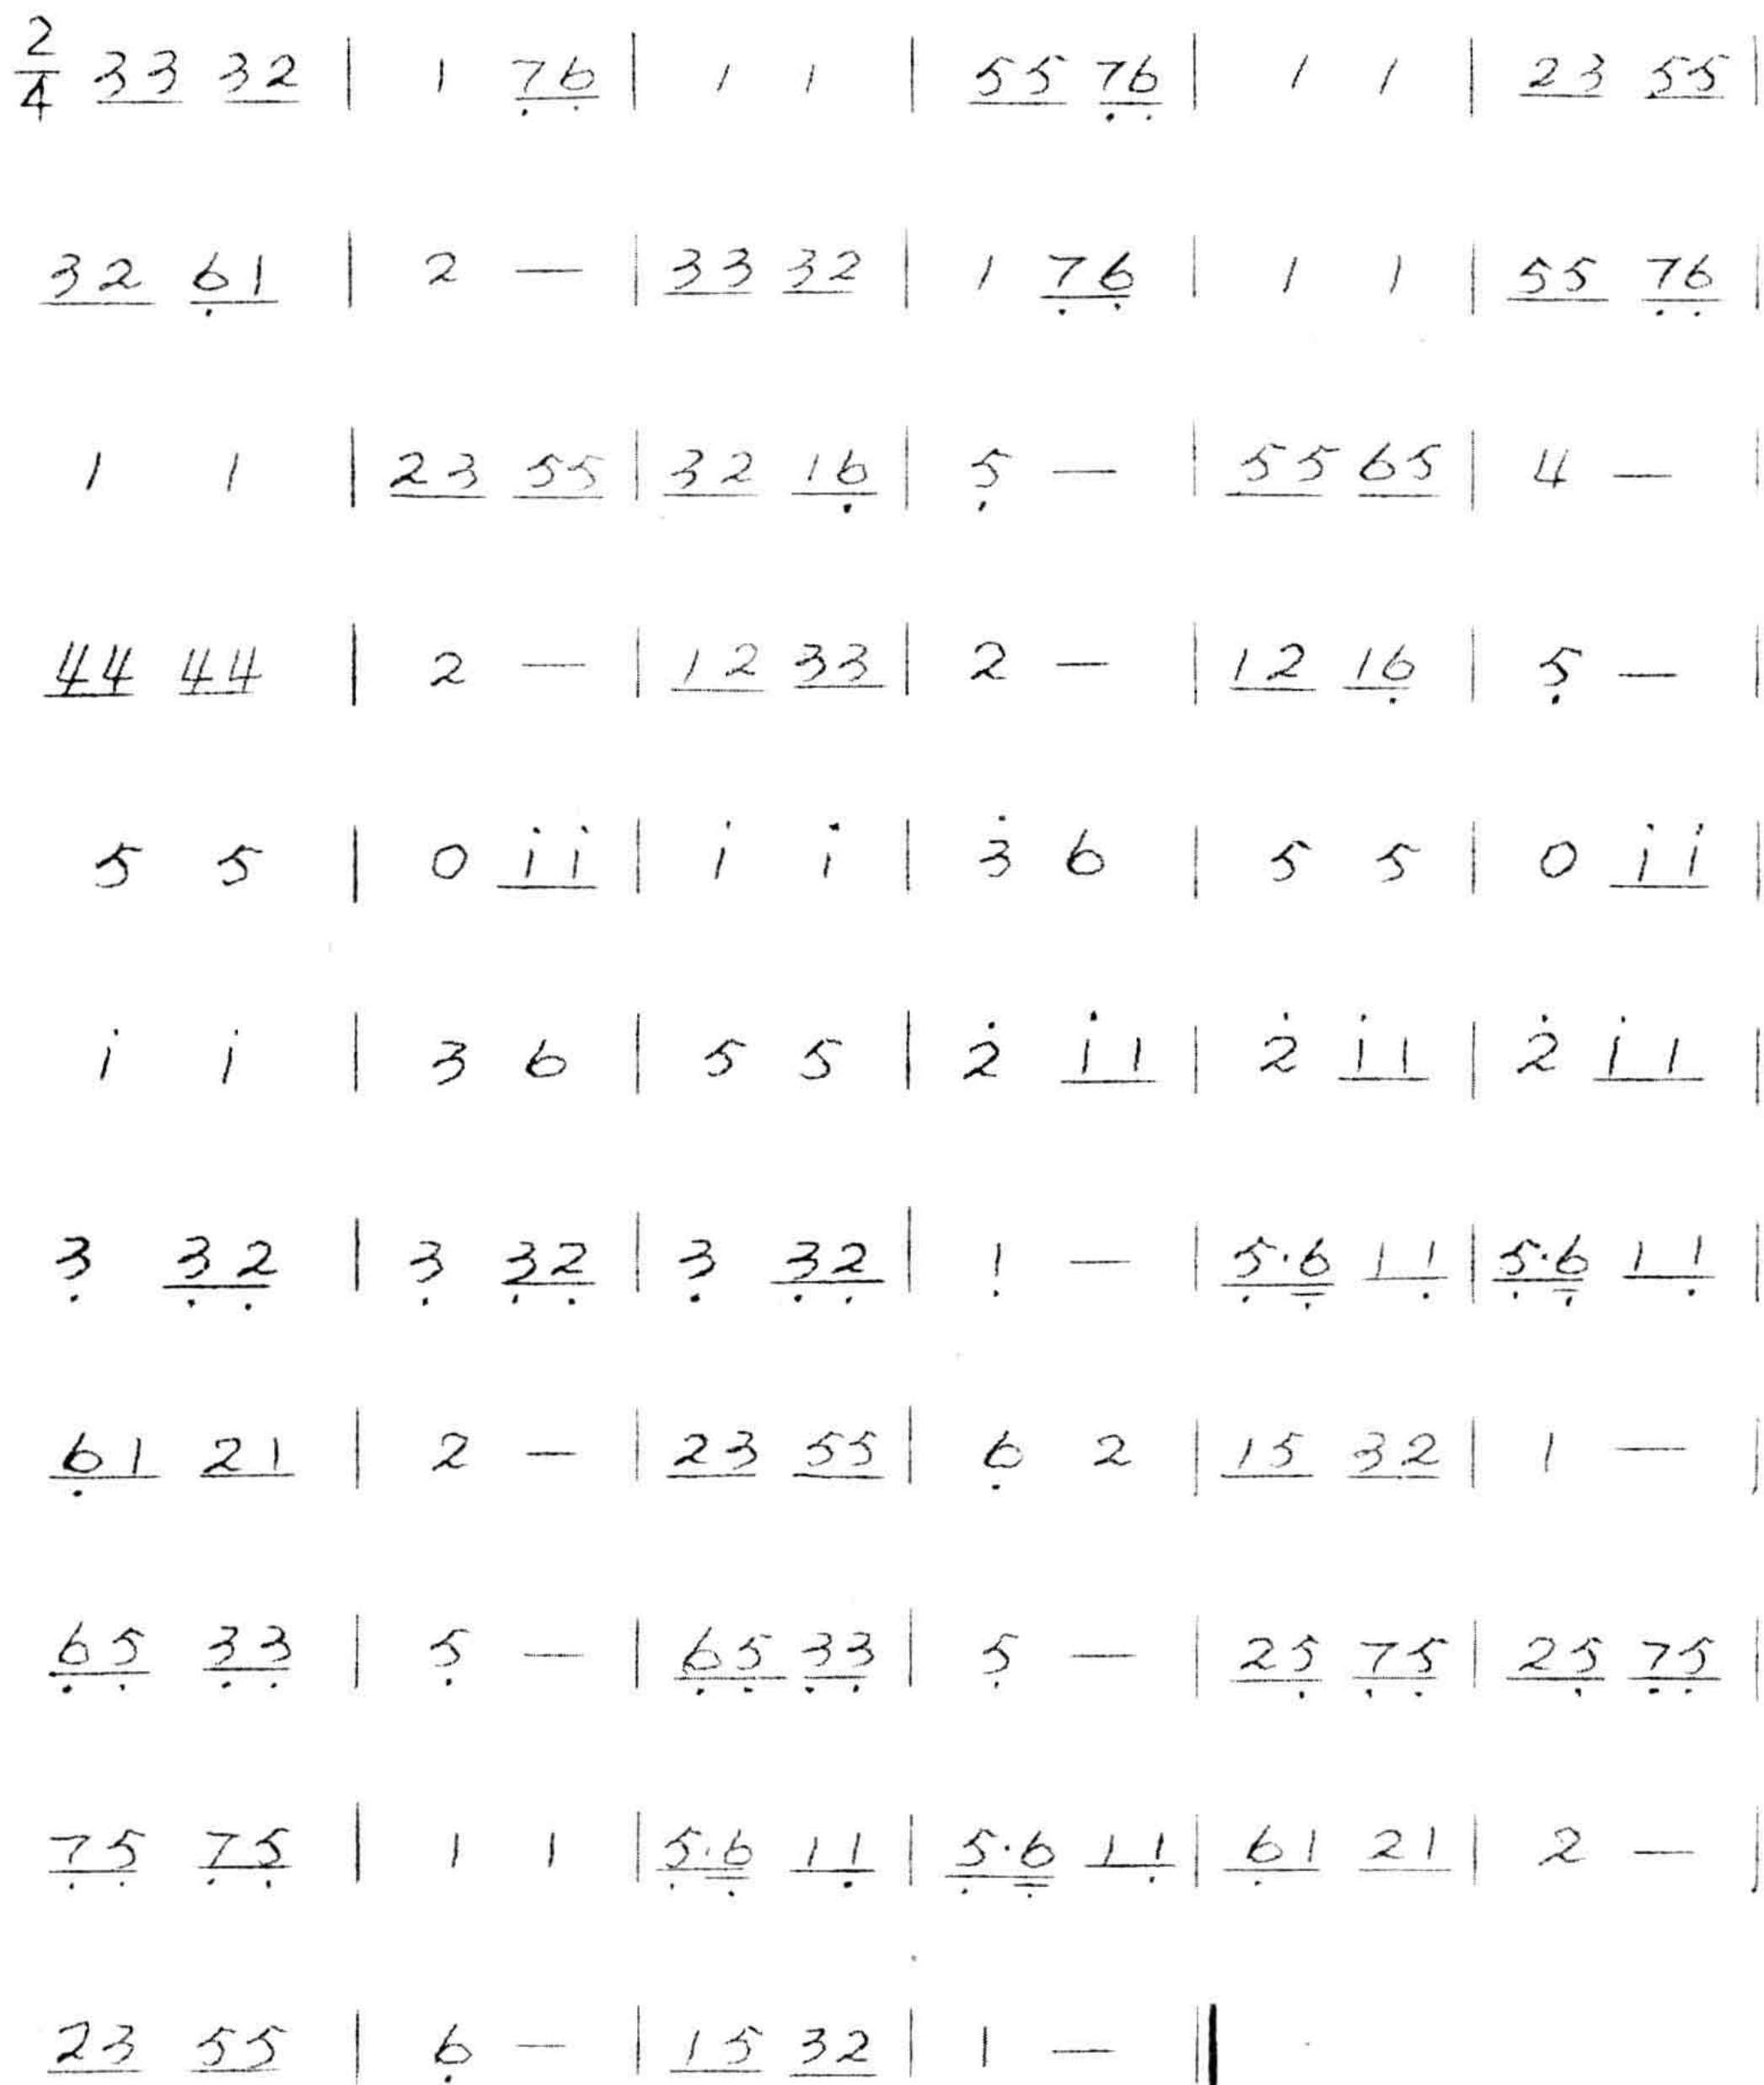 2/4 3̲3̲ 3̲2̲ | 1 7̣̲6̣̲ | 1 1 | 5̲5̲ 7̣̲6̣̲ | 1 1 | 2̲3̲ 5̲5̲ |
3̲2̲ 6̣̲1̲ | 2 — | 3̲3̲ 3̲2̲ | 1 7̣̲6̣̲ | 1 1 | 5̲5̲ 7̣̲6̣̲ |
1 1 | 2̲3̲ 5̲5̲ | 3̲2̲ 1̲6̣̲ | 5̣ — | 5̲5̲ 6̲5̲ | 4 — |
4̲4̲ 4̲4̲ | 2 — | 1̲2̲ 3̲3̲ | 2 — | 1̲2̲ 1̲6̣̲ | 5̣ — |
5 5 | 0 1̲̇1̲̇ | 1̇ 1̇ | 3̇ 6 | 5 5 | 0 1̲̇1̲̇ |
1̇ 1̇ | 3 6 | 5 5 | 2̇ 1̲̇1̲ | 2̇ 1̲̇1̲ | 2̇ 1̲̇1̲ |
3̣ 3̣̲2̣̲ | 3̣ 3̣̲2̣̲ | 3̣ 3̣̲2̣̲ | 1̣ — | 5̣̲·6̣̳ 1̲1̣̲ | 5̣̲·6̣̳ 1̲1̣̲ |
6̣̲1̲ 2̲1̲ | 2 — | 2̲3̲ 5̲5̲ | 6̣ 2 | 1̲5̲ 3̲2̲ | 1 — |
6̣̲5̣̲ 3̣̲3̣̲ | 5̣ — | 6̣̲5̣̲ 3̣̲3̣̲ | 5̣ — | 2̲5̣̲ 7̣̲5̣̲ | 2̲5̣̲ 7̣̲5̣̲ |
7̣̲5̣̲ 7̣̲5̣̲ | 1 1 | 5̣̲·6̣̳ 1̲1̣̲ | 5̣̲·6̣̳ 1̲1̣̲ | 6̣̲1̲ 2̲1̲ | 2 — |
2̲3̲ 5̲5̲ | 6̣ — | 1̲5̲ 3̲2̲ | 1 — ‖